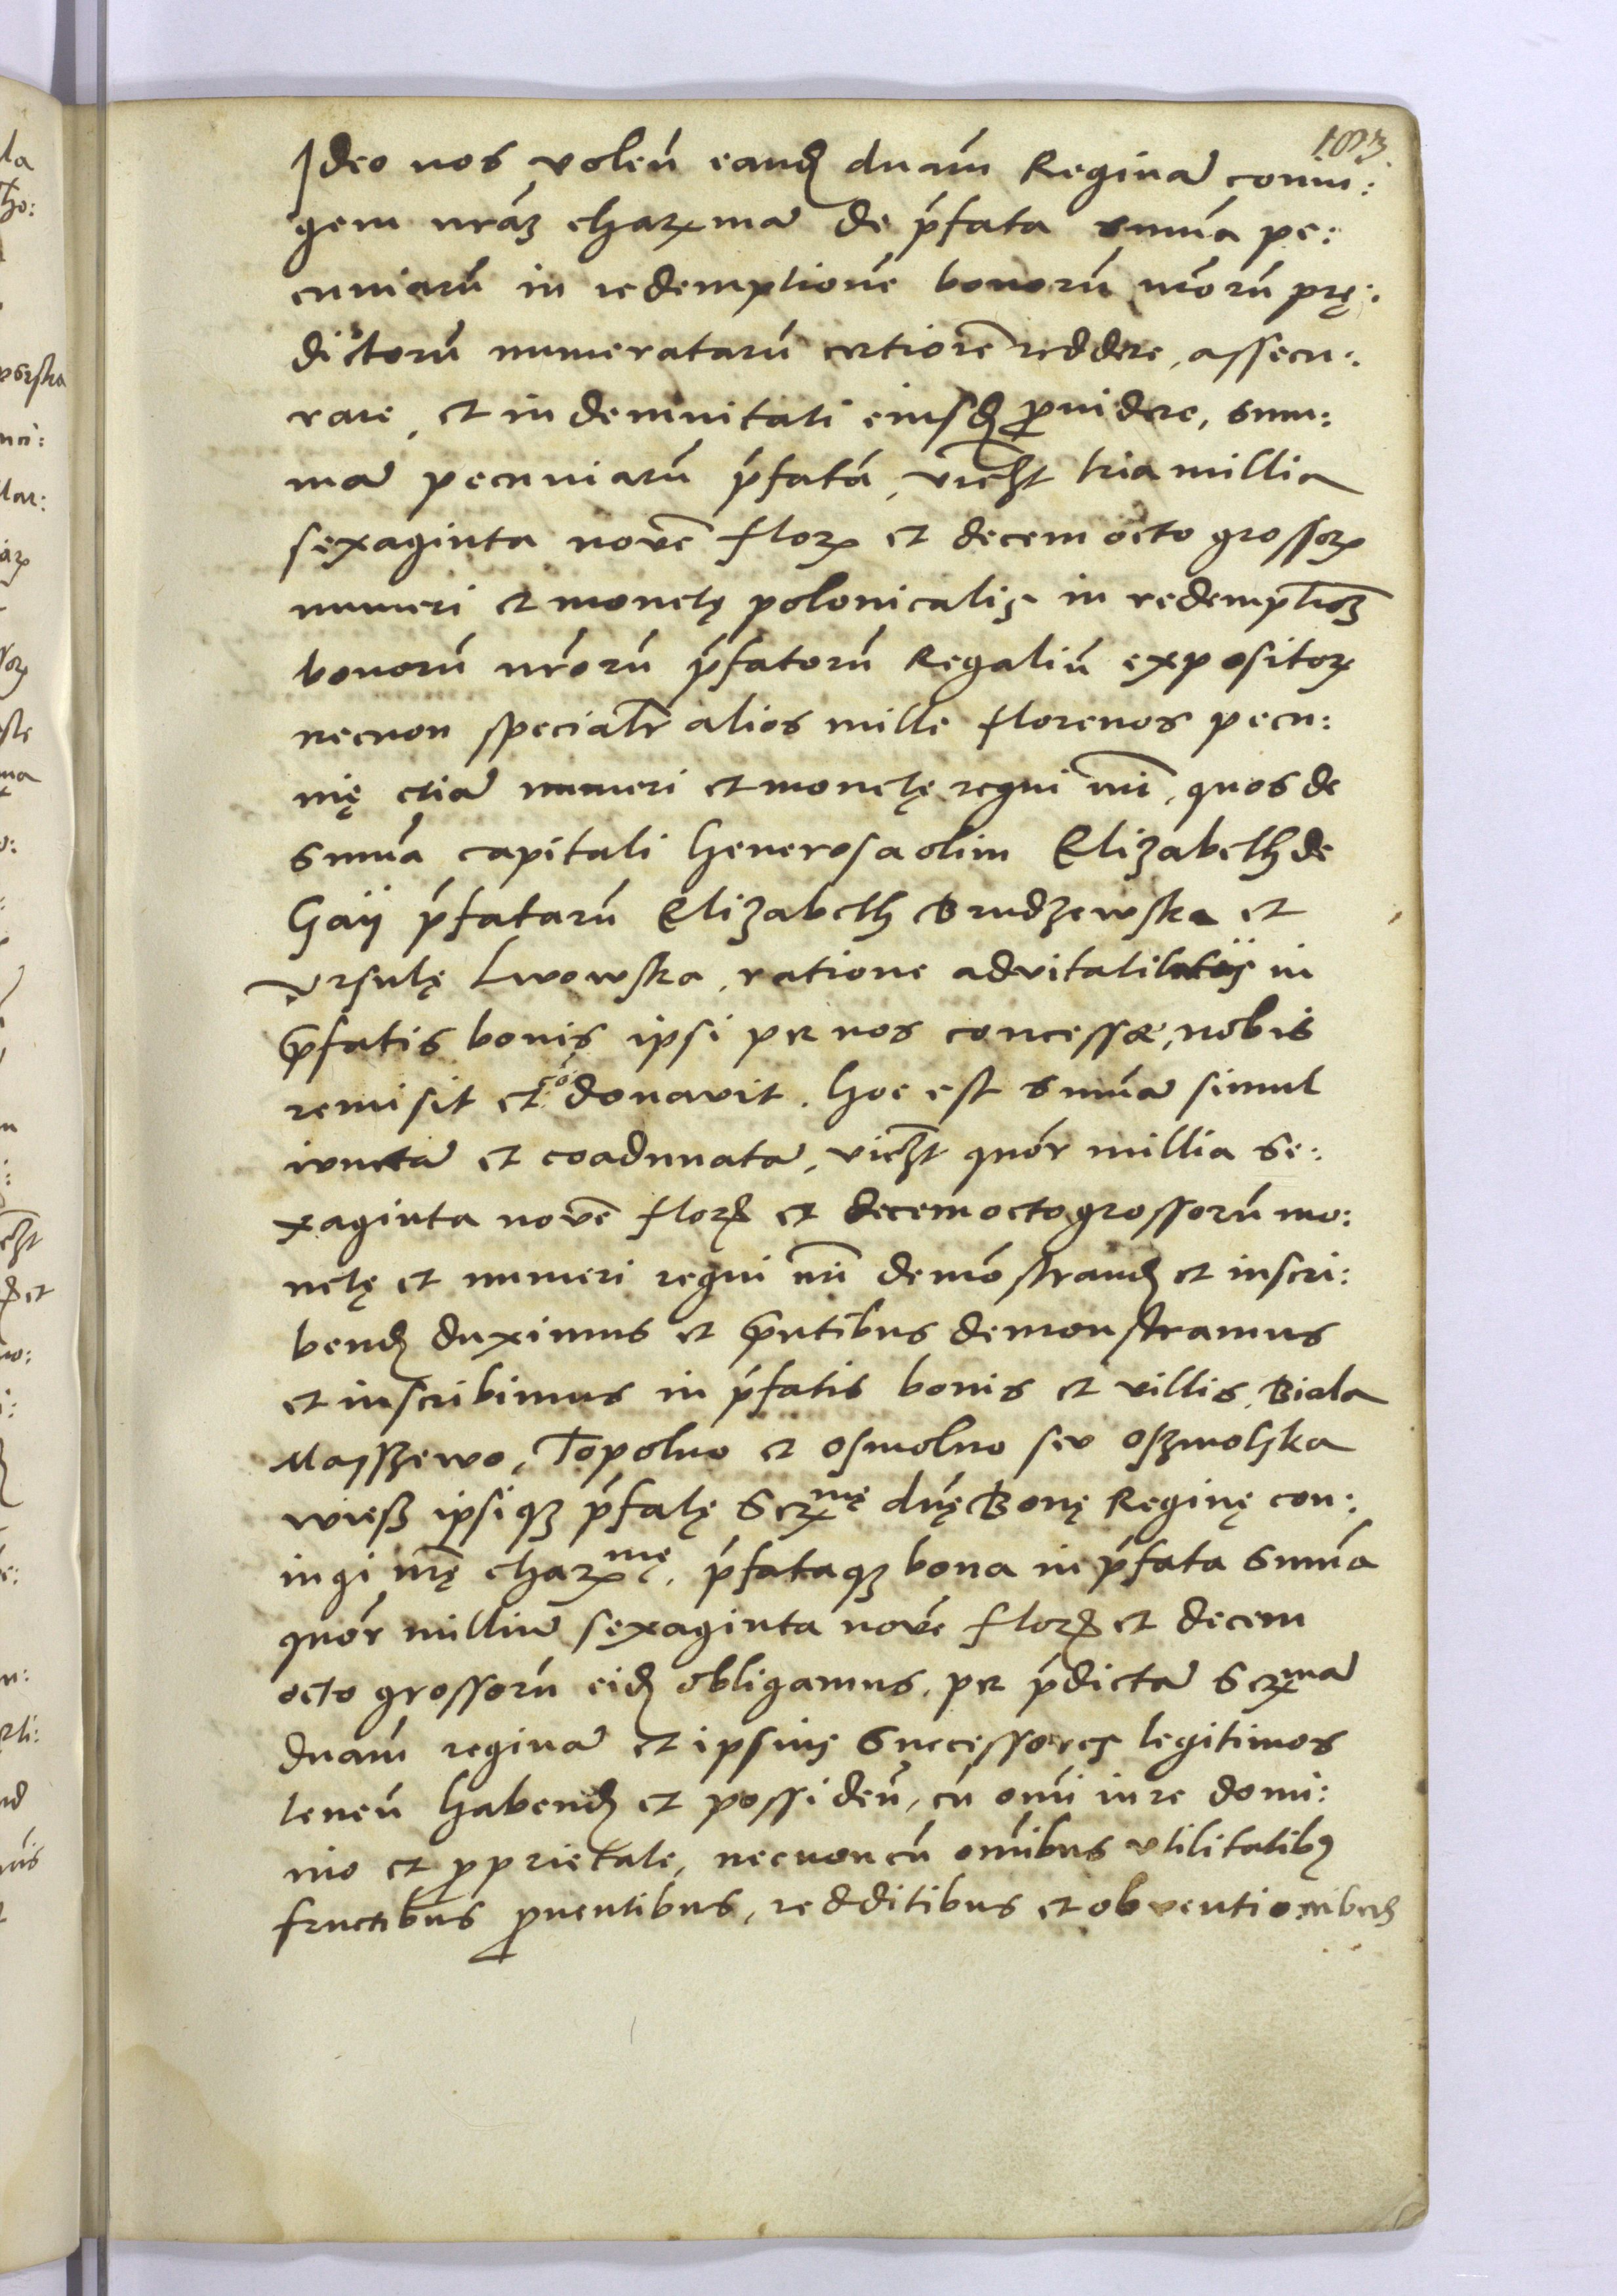 1003.
Ideo nos volen̄ eand̨ dnám Reginā coniu:
gem nráꝫ charꝝmā de ṕfata summá pe:
cuniarū in redemptioné bonorū nr̄orū prę:
dictorū numeratarū certiorē reddere, assecu:
rare, et indemnitati eiusd̨ ꝓuidere, sum:
mā pecuniarū ṕfatá, vicꝫt tria millia
sexaginta novē florꝝ et decem octo grossorꝝ
numeri et monetę polonicalis in redemptioꝫ
bonorū nr̄orū ṕfatorū Regaliū expositorꝝ
necnon specialr̄ alios mille florenos pecu:
nię etiā numeri et monetę regni nr̄i, quos de
summá capitali Generosa olim Elizabeth de
Gaÿ ṕfatarū Elizabeth Brudzewska et
Vrsulę Lwowska, ratione advitalitatis in
p̄fatis bonis ipsi per nos concessæ, nobis
remisit et cō donavit. hoc est summā simul
iunctā et coadunatā, vicꝫt quór millia se:
xaginta novē florꝝ et decem octo grossorū mo:
netę et numeri regni nr̄i demōstrand̨ et inscri:
bend̨ duximus et p̄ntibus demonstramus
et inscribimus in ṕfatis bonis et villis, Biala
Maÿsszewo, Topolno et Osmolno seu Oszmolska
wiesß ipsiqꝫ ṕfatę Serꝝmę dn̄ę Bonę Reginę con:
iugi nr̄ę charꝝmę. ṕfataqꝫ bona in ṕfata summá
quór milliū sexaginta nové florꝝ et decem
octo grossorū eid̨ obligamus. per ṕdictā Serꝝmā
dnám reginā et ipsius successores legitimos
tenen̄ habend̨ et possiden̄, cū omī iure domi:
nio et ꝓprietate, necnon cū omībus vtilitatibꝫ
fructibus ꝓuentibus, redditibus et obventionibus